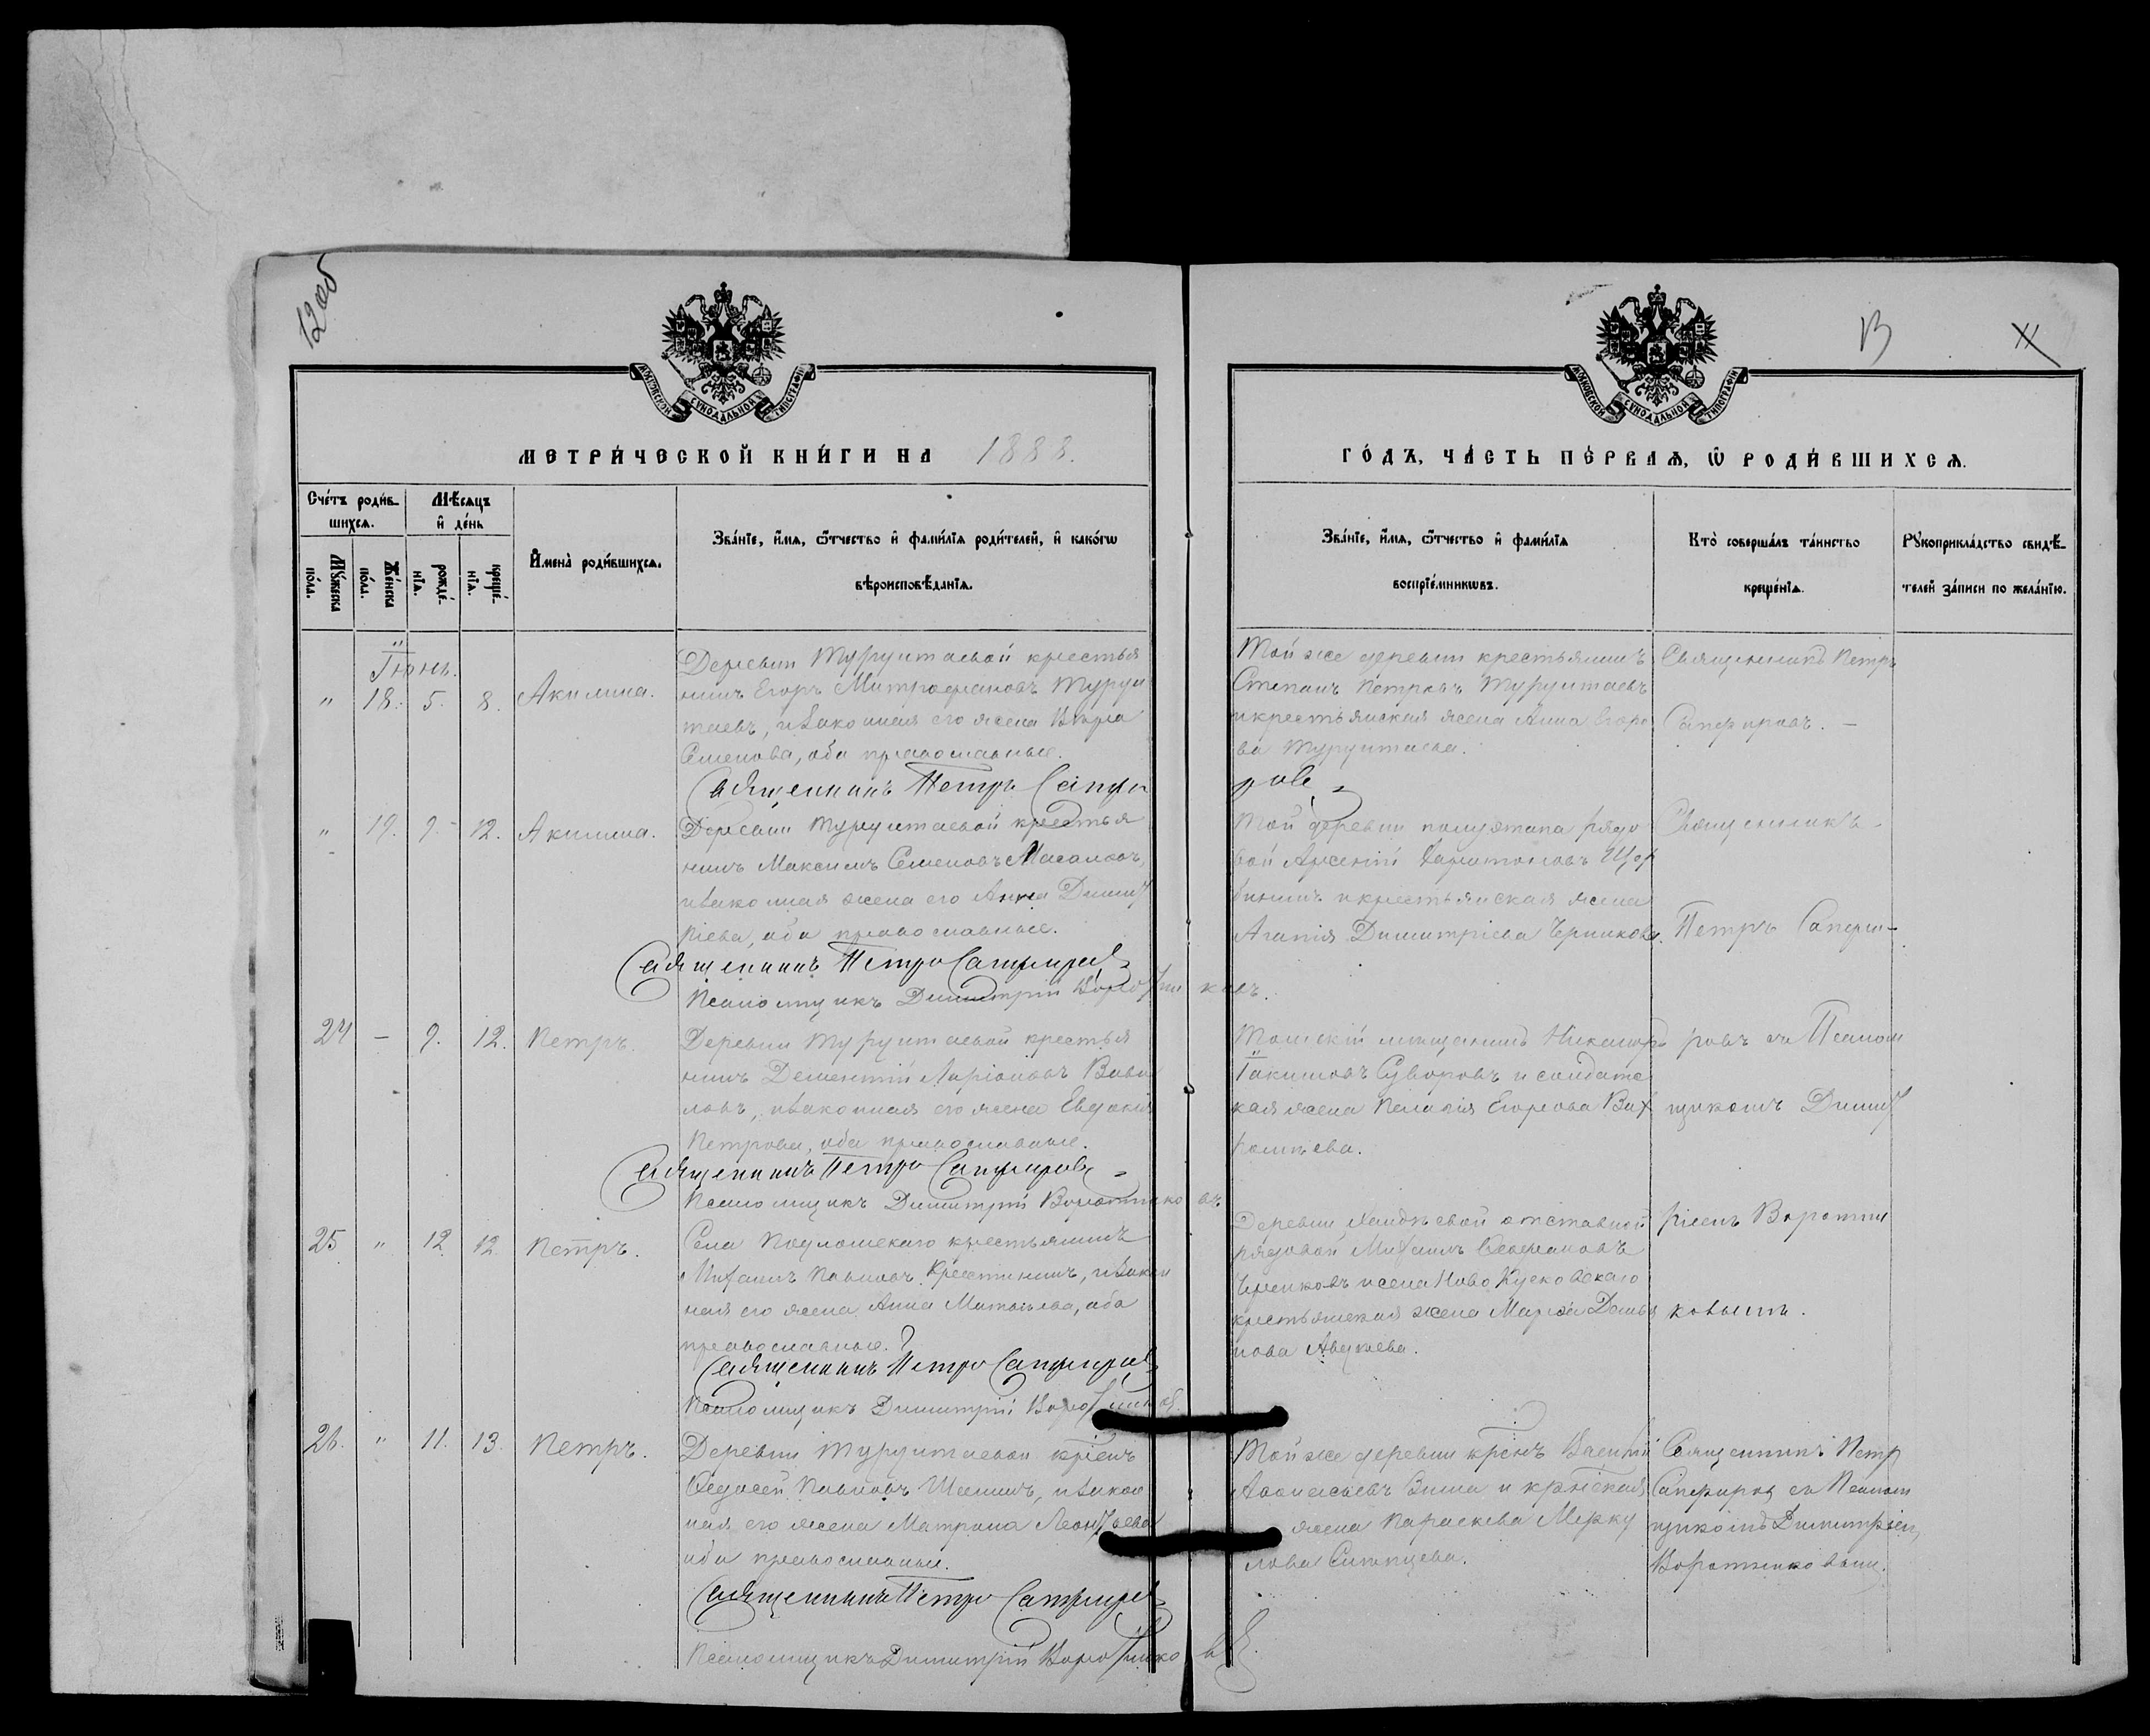 12 об
13
МОСКОВСКОЙ СУНОДАЛЬНОЙ ТИПОГРАФІИ
МОСКОВСКОЙ СУНОДАЛЬНОЙ ТИПОГРАФІИ
МЕТРИ́ЧЕСКОЙ КНИ́ГИ НА 1888.
ГО́ДЪ, ЧА́СТЬ ПЕ́РВАѦ, Ѿ РОДИ́ВШИХСѦ.
Сче́тъ роди́в-
шихсѧ.
Мѣ́сѧцъ
и҆ де́нь
Мꙋ́жеска
по́ла.
Же́нска
по́ла.
рожде́-
нїѧ.
креще́-
нїѧ.
И҆мена̀ роди́вшихсѧ.
Зва́нїе, и҆́мѧ, ѻ҆́тчество и҆ фами́лїѧ роди́телей, и҆ како́гѡ
вѣроисповѣ́данїѧ.
Зва́нїе, и҆́мѧ, ѻ҆́тчество и҆ фами́лїѧ
воспрїе́мникѡвъ.
Кто̀ соверша́лъ та́инство
креще́нїѧ.
Рꙋкоприкла́дство свидѣ́-
телей за́писи по жела́нїю.
Іюнь.
" 18. 5. 8. Акилина.
Деревни Турунтаевой крестья
нинъ Егоръ Митрофановъ Турун
таевъ, и законная его жена Вѣра
Семенова, оба православные.
Священникъ Петръ Сапфи
ровъ
Той же деревни крестьянинъ
Степанъ Петровъ Турунтаевъ
и крестьянская жена Анна Егоро
ва Турунтаева.
Священникъ Петръ
Сапфировъ. –
" 19. 9. 12. Акилина.
Деревни Турунтаевой крестья
нинъ Максимъ Семеновъ Масаловъ,
и законная жена его Анна Димит
ріева, оба православные.
Священникъ Петръ Сапфировъ
Псаломщикъ Димитрій Воротни ковъ.
Той деревни полуэтапа рядо
вой Арсеній Харитоновъ Щер
бининъ и крестьянская жена
Агапія Димитріева Черикова.
Священникъ
Петръ Сапфи-
24 – 9. 12. Петръ.
Деревни Турунтаевой крестья
нинъ Дементій Ларіоновъ Вави
ловъ, и законная его жена Евдокія
Петрова, оба православные.
Священникъ Петръ Сапфировъ
Псаломщикъ Димитрій Воротнико въ.
Томскій мѣщанинъ Никаноръ
Іакимовъ Суворовъ и солдатс
кая жена Пелагія Егорова Вах
ровъ съ Псалом
щикомъ Димит
25 " 12. 12. Петръ.
Села Подломскаго крестьянинъ
Михаилъ Павловъ Крестининъ, и закон
ная его жена Анна Матвѣева, оба
православные.
Священникъ Петръ Сапфировъ
Псаломщикъ Димитрій Воротников.
отставной
рядовой Михаилъ
и села Ново Кусковскаго
крестьянская жена Марѳа Демья
нова Авдеева.
ріемъ Воротни
ковымъ.
26. " 11. 13. Петръ.
Деревни Турунтаевой кр̅енъ
Ѳедосей Павловъ Шишинъ, и закон
ная его жена Матрона Леонтьева
оба православные.
Священникъ Петръ Сапфировъ
Псаломщикъ Димитрій Воротнико въ.
Той же деревни кр̅енъ Василій
Аѳанасьевъ Зима и кр̅нская
жена Параскева Мерку
лова Ситнцева.
Священникъ Петр
Сапфировъ съ Псалом
щикомъ Димитріем,
Воротниковым.